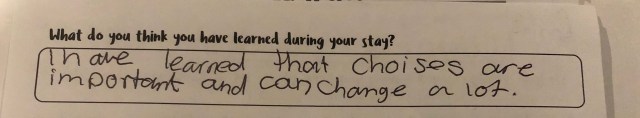 What do you think you have learned during your stay?
I have learned that choises are
important and can change a lot.